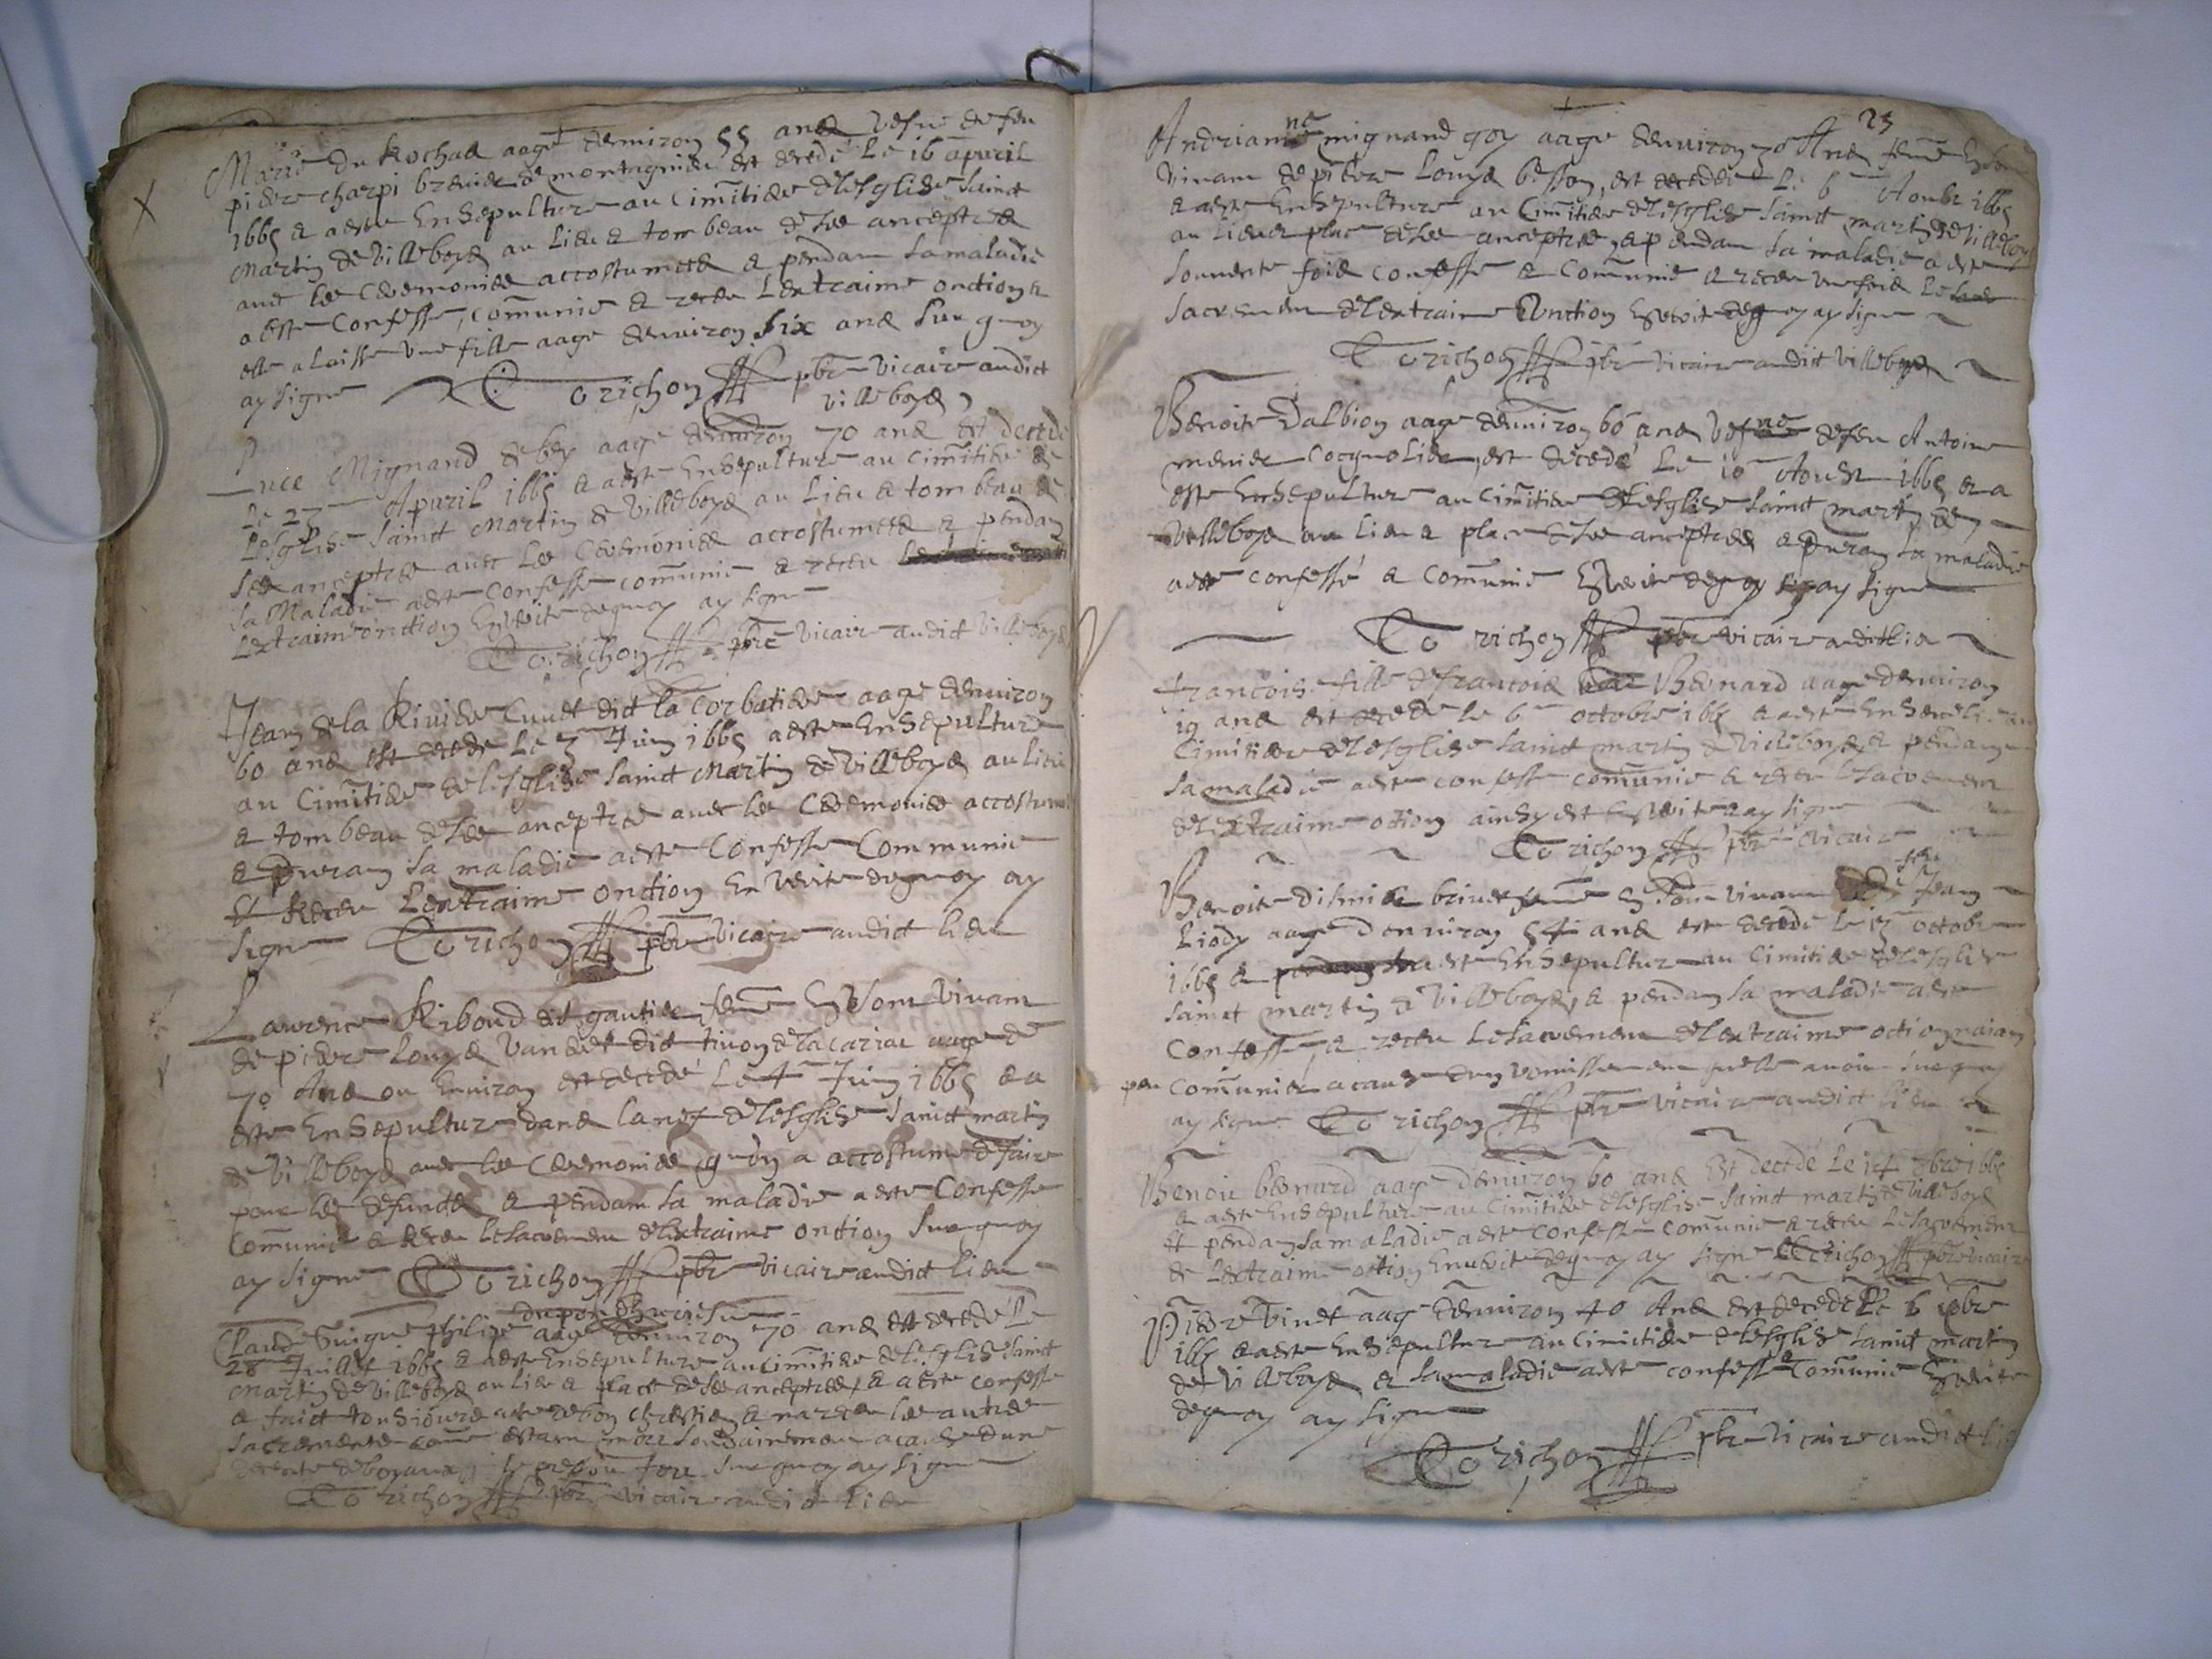 Marie Du Rochas aagé denviron 55 ans vefue de feu
pierre charpi brenier de montagnieu est decedé le 16 apuril
1665 & a esté Ensepulture au Cimitiere de lesglise sainct
Martin de Villeboys au lieu & tombeau de ses anceptres
auec les Ceremonies accostumees & pendam sa maladie
a esté Confessé, comunié & receu Lextraime onction &
elle a laissé une fille aage denuiron six ans sur quoy
ay signe Corichon pbr vicaire audict
villeboys
Mignand de bey aage denuiron 70 ans est decedé
le 23 Apuril 1665 & a esté Ensepulture au Cimitiere de
Lesglise sainct Martin de Villeboys au Lieu & tombeau de
ses anceptres auec les Ceremonies accostumees & pendan
sa Maladie a esté Confessé comunié & receu
Lextraim onction En verite de quoy ay signe
Corichon pbre vicaire audict villeboys
Jean de la Riviere Cuuet dict la Corbatiere aage denuiron
60 ans est decede le 3 Juin 1665 a esté Ensepulture
au Cimitiere de lesglise sainct Martin de Villeboys au lieu
& tombeau de ses anceptres auec les Ceremonies accostume
& duran sa maladie a esté Confessé Communié
et Receu Lextraime onction En Verite de quoy ay
signe Corichon pbr vicaire audict lieu
Laurence Riboud dit gautier, feme En son Vivam
de pierre louys Vandet dict tiuon de lacariac aage de
70 Ans ou Enuiron est decedé Le 4 Juin 1665 & a
esté Ensepulture dans la nef de lesglise sainct martin
de Villeboys auec les Ceremonies quon a accostume de faire
pour les defuncts & pendam sa maladie a esté Confessé
Comunié & Receu le sacremen de lextraime onction Sur quoy
ay signe Corichon pbr vicaire audict lieu
Claude Guigue philipe aage denuiron 70 ans est decedé le
28 Juillet 1665 & a esté Ensepulture au cimitiere de lesglise sainct
Martin de Villeboys au lieu & place de ses anceptres, & a esté confessé
& faict tousiours acte de bon chrestien & na receu les autres
sacrements come estam mort soudainemen a cause dune
de boyaux, Sur quoy ay signe
Corichon pbr vicaire audict lieu
23
Andrianne mignand goy aage denuiron 30 Ans feme En son
Vivam de pierre Louys besson, est decedé le 6 Aoust 1665
& a esté Ensepulture au Cimitiere de lesglise sainct martin de Villeboys
au lieu & place de ses anceptres, & pendam sa maladie a esté
souuente fois confessé & comunié & receu une fois le
sacremen de lextraime Onction En verité de quoy ay signe
Corichon pbr vicaire audict Villeboys
Benoite Dalbion aage denuiron 60 ans Vefue de feu Antoine
menier Cocquolier, est decedé Le 10 Aoust 1665 & a
esté Ensepulture au Cimitiere de lesglise sainct martin de
Villeboys au lieu & place de ses anceptres & duran sa maladie
a esté confessé & comunié En verité de quoy ay signe
Corichon pbr vicaire audict lieu
francoise fille de francois Bernard aage denuiron
19 ans est decede le 6 octobre 1665 & a esté Enseueli au
Cimitiere de lesglise sainct martin de Villeboys, & pendan
sa maladie a esté confessé comunié & receu le sacremen
de lextraime oction ainsy est En verité & ay signe
Corichon pbr vicaire
Benoite disnier briuet feme En son vivam de feu Jean
Liody aage Denuiron 54 ans est decedé le 13 octobre
1665 & a esté Ensepulture au Cimitiere de lesglise
sainct martin de Villeboys, & pendan sa maladie a esté
Confessé, & receu le sacremen de lextraime oction naian
peu Comunier a cause dun vomissemen quelle auoit sur quoy
ay signe Corichon pbr vicaire audict lieu
Benoit bernard aage denuiron 60 ans est decedé le 14 8bre 1665
& a esté Ensepulture au Cimitiere de lesglise sainct martin de Villeboys
et pendan sa maladie a esté confessé comunié & receu le sacremen
de Lextraime oction En verité de quoy ay signe Corichon pbr vicaire
Pierre Vinet aage denuiron 40 Ans est decedé le 6 9bre
1665 & a esté Ensepulture au Cimitiere de lesglise sainct martin
de Villeboys & sa maladie a esté confessé & comunié En verité
de quoy ay signe
Corichon pbr vicaire audict lieu